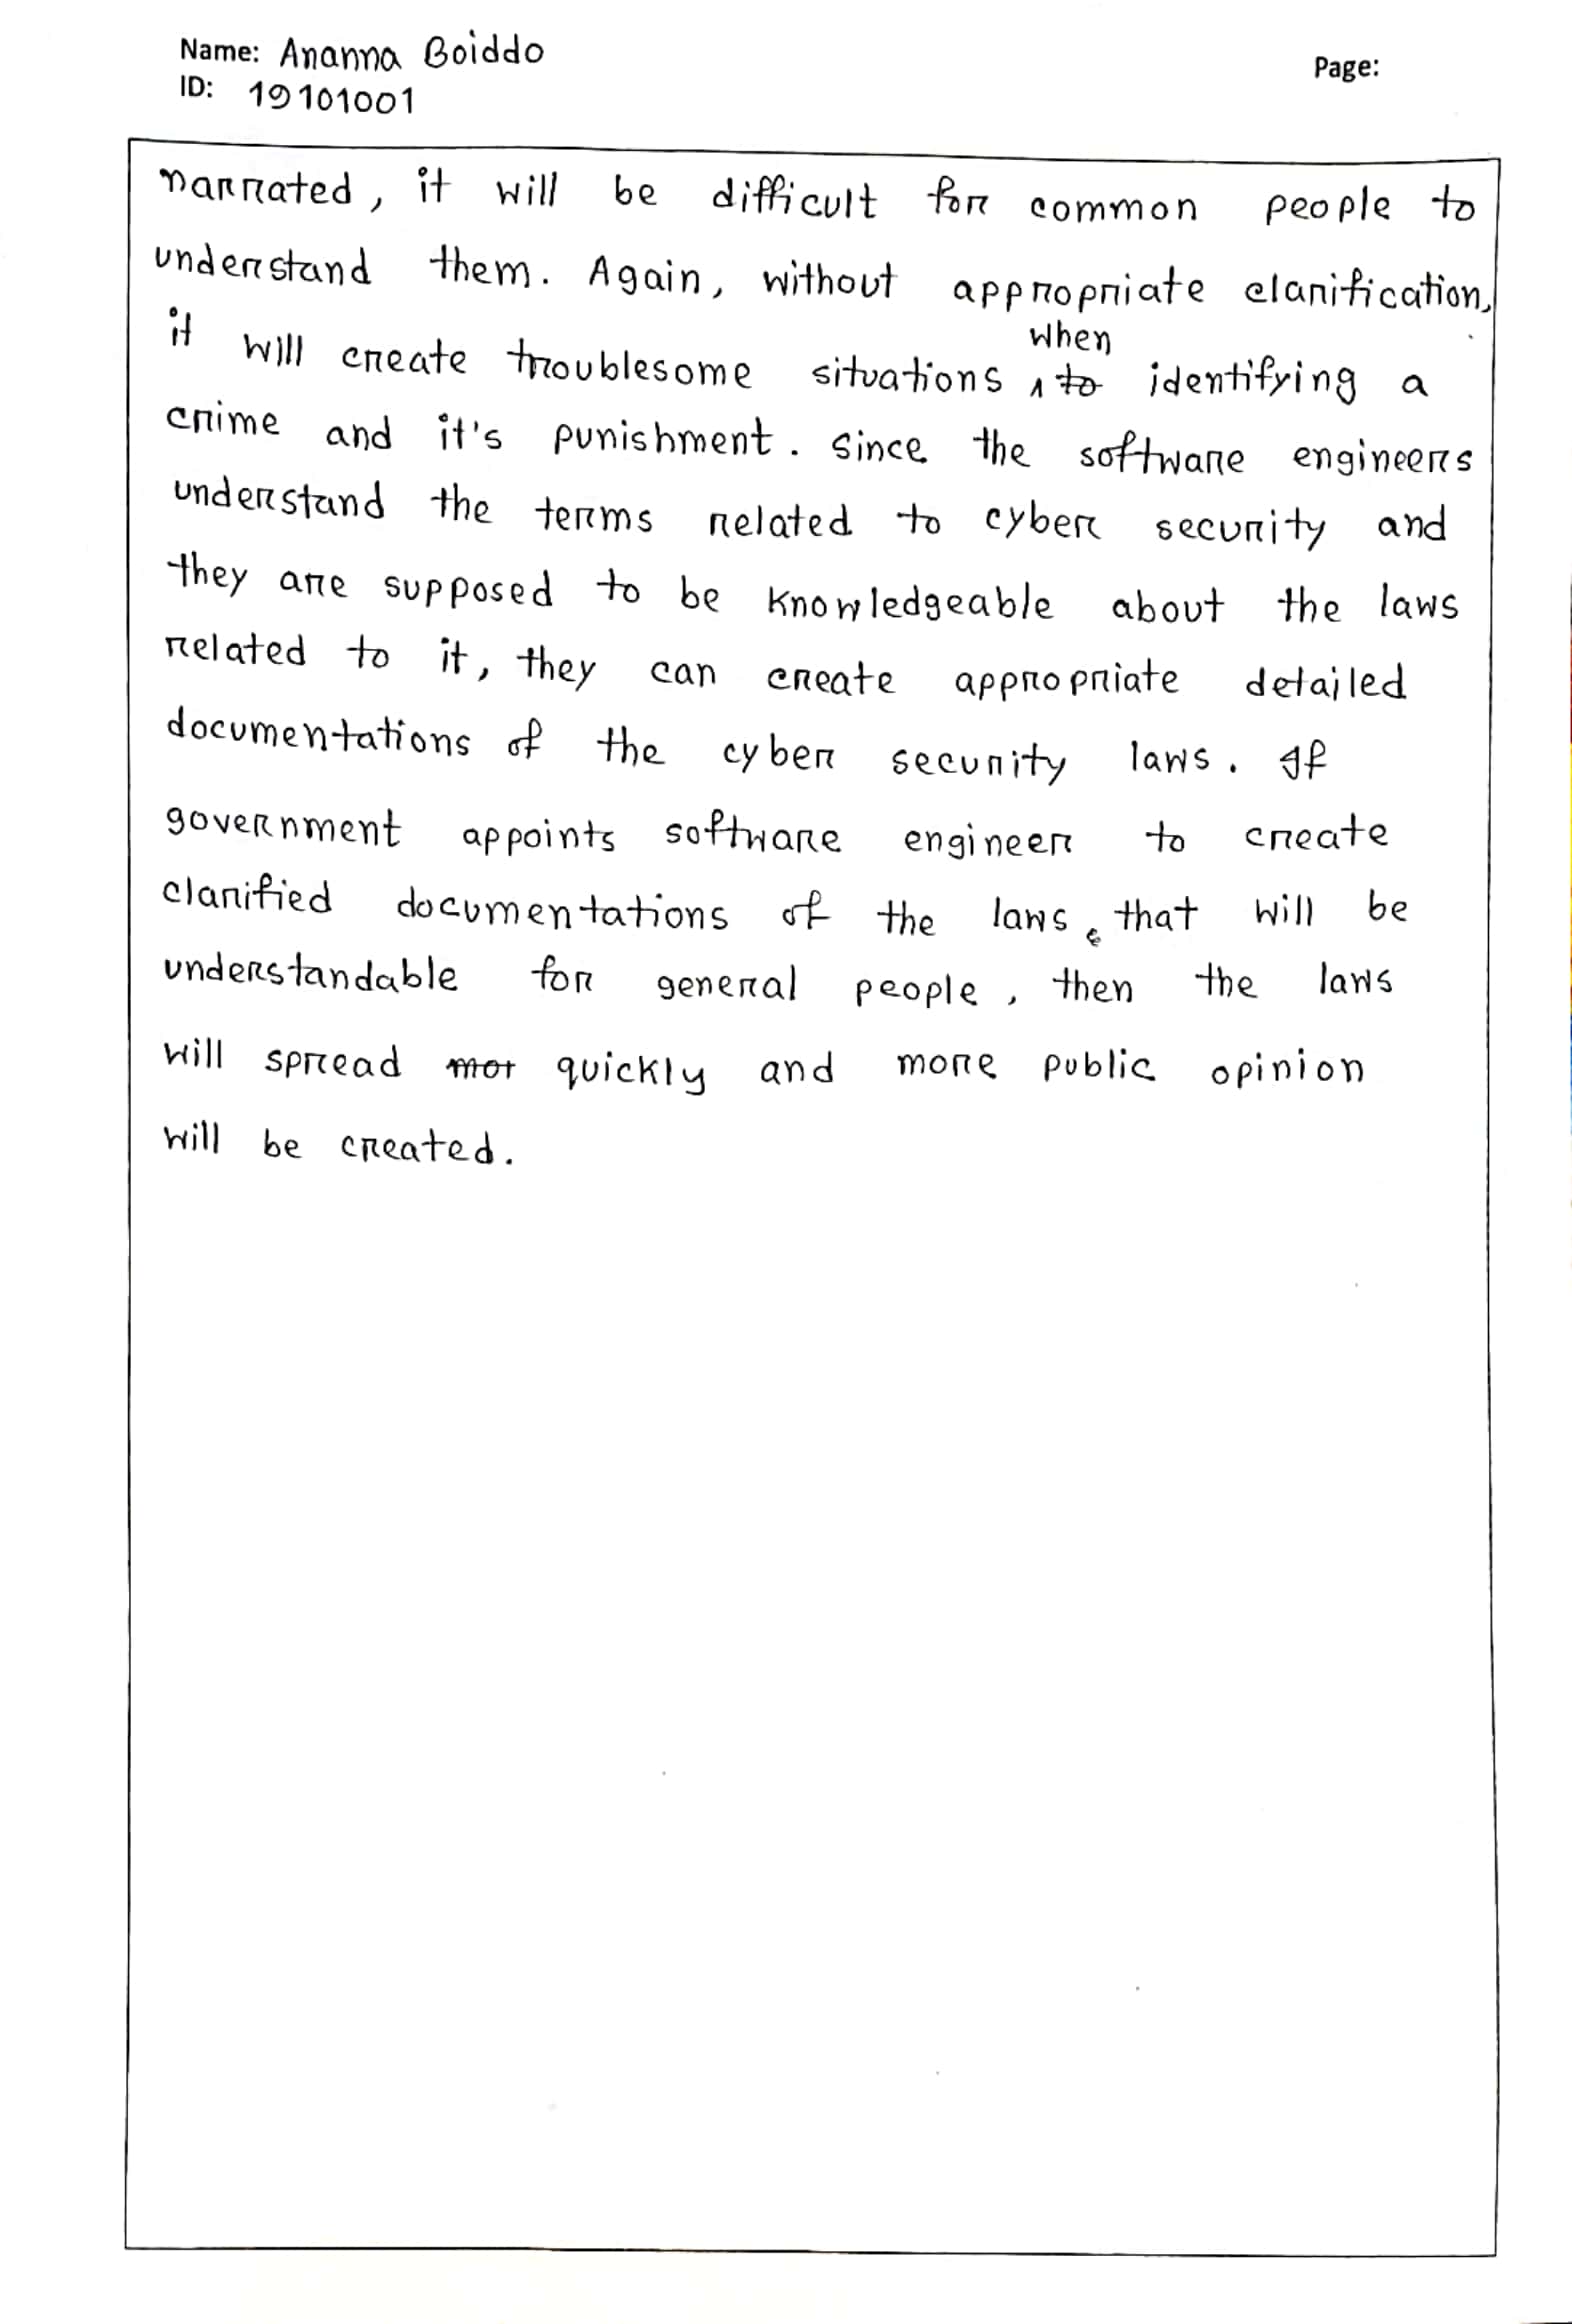 Name: Ananna Boiddo
Page:
ID: 19101001
narrated, it will be difficult for common people to
understand them. Again, without appropriate clarification,
it will create troublesome situations when to identifying a
crime and it's punishment. Since the software engineers
understand the terms related to cyber security and
they are supposed to be knowledgeable about the laws
related to it, they can create appropriate detailed
documentations of the cyber security laws. If
government appoints software engineer to create
clarified documentations of the laws, that will be
understandable for general people, then the laws
will spread mor quickly and more public opinion
will be created.